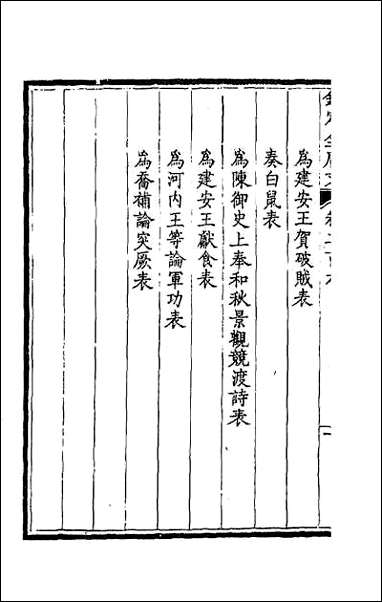 欽定全唐文 卷二百九 一
爲建安王賀破賊表
奏白鼠表
爲陳御史上奉和秋景觀競渡詩表
爲建安王獻食表
爲河内王等論軍功表
爲喬補論突厥表